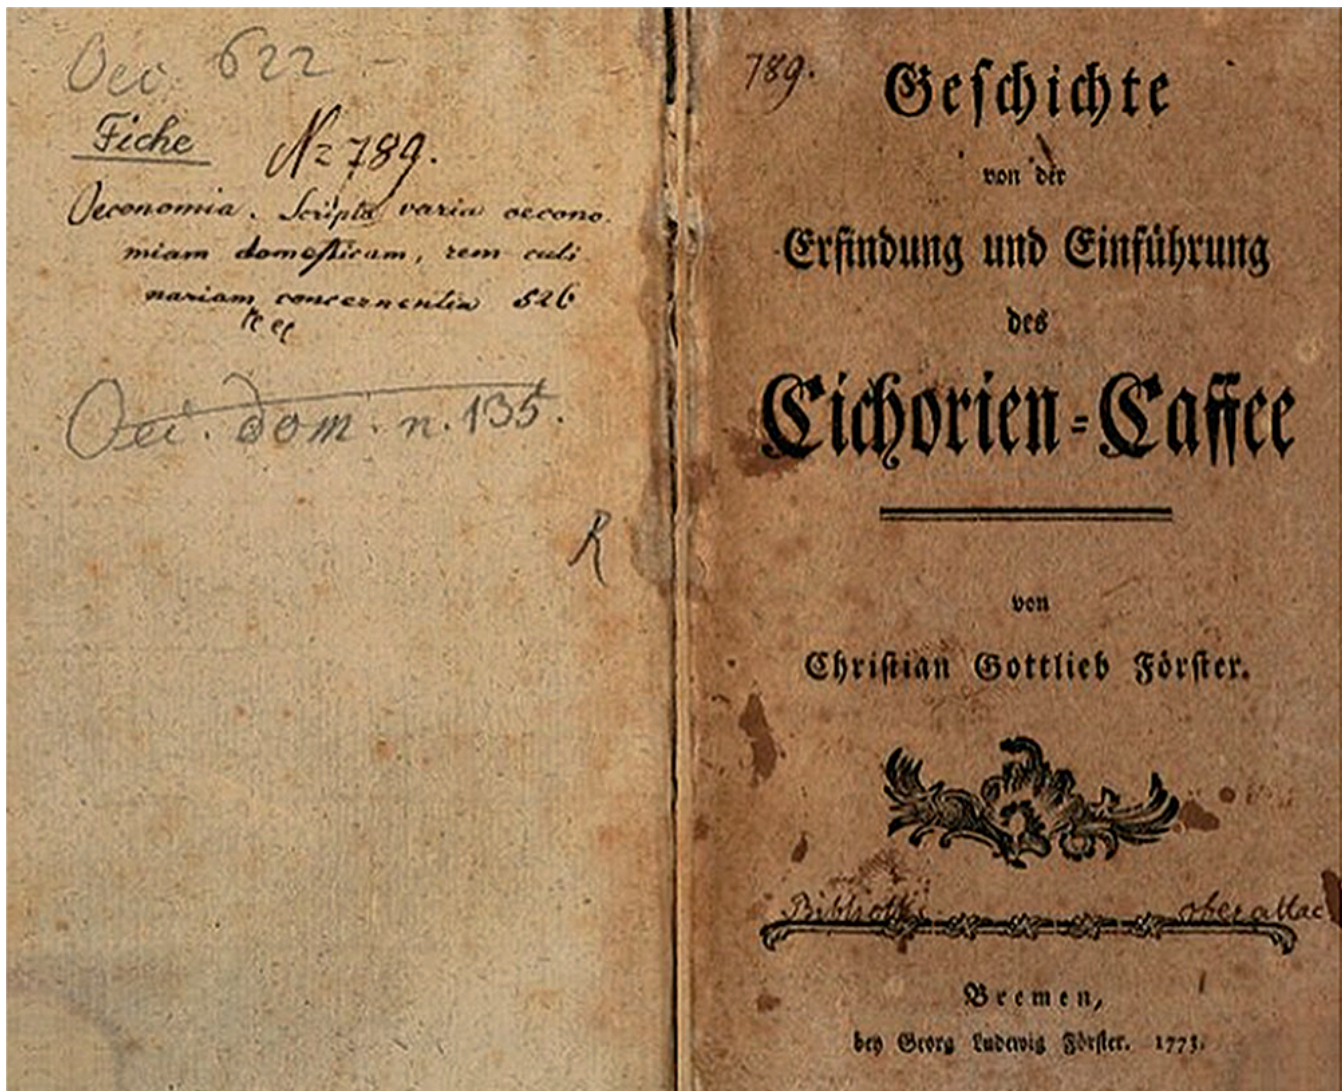 Oec. 622 -
Fiche
N= 789.
Oeconomia. Scripta varia oecono
miam domesticam, rem culi
nariam concernentia 526
Oec. dom. n. 135.
R
789.
Geſchichte
von der
Erfindung und Einführung
des
Cichorien-Caffee
von
Chriſtian Gottlieb Förſter.
Bremen,
bey Georg Ludewig Förſter. 1773.